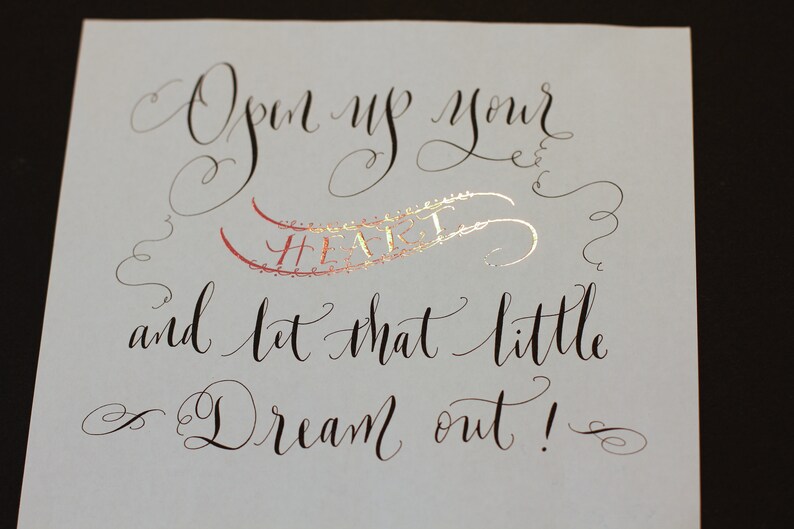 Open up your
HEART
and let that little
Dream out!